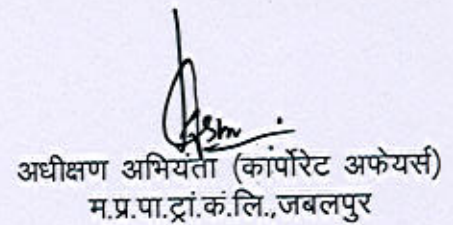 अधीक्षण अभियंता (कार्पोरेट अफेयर्स)
म.प्र.पा.ट्रां.कं.लि.,जबलपुर